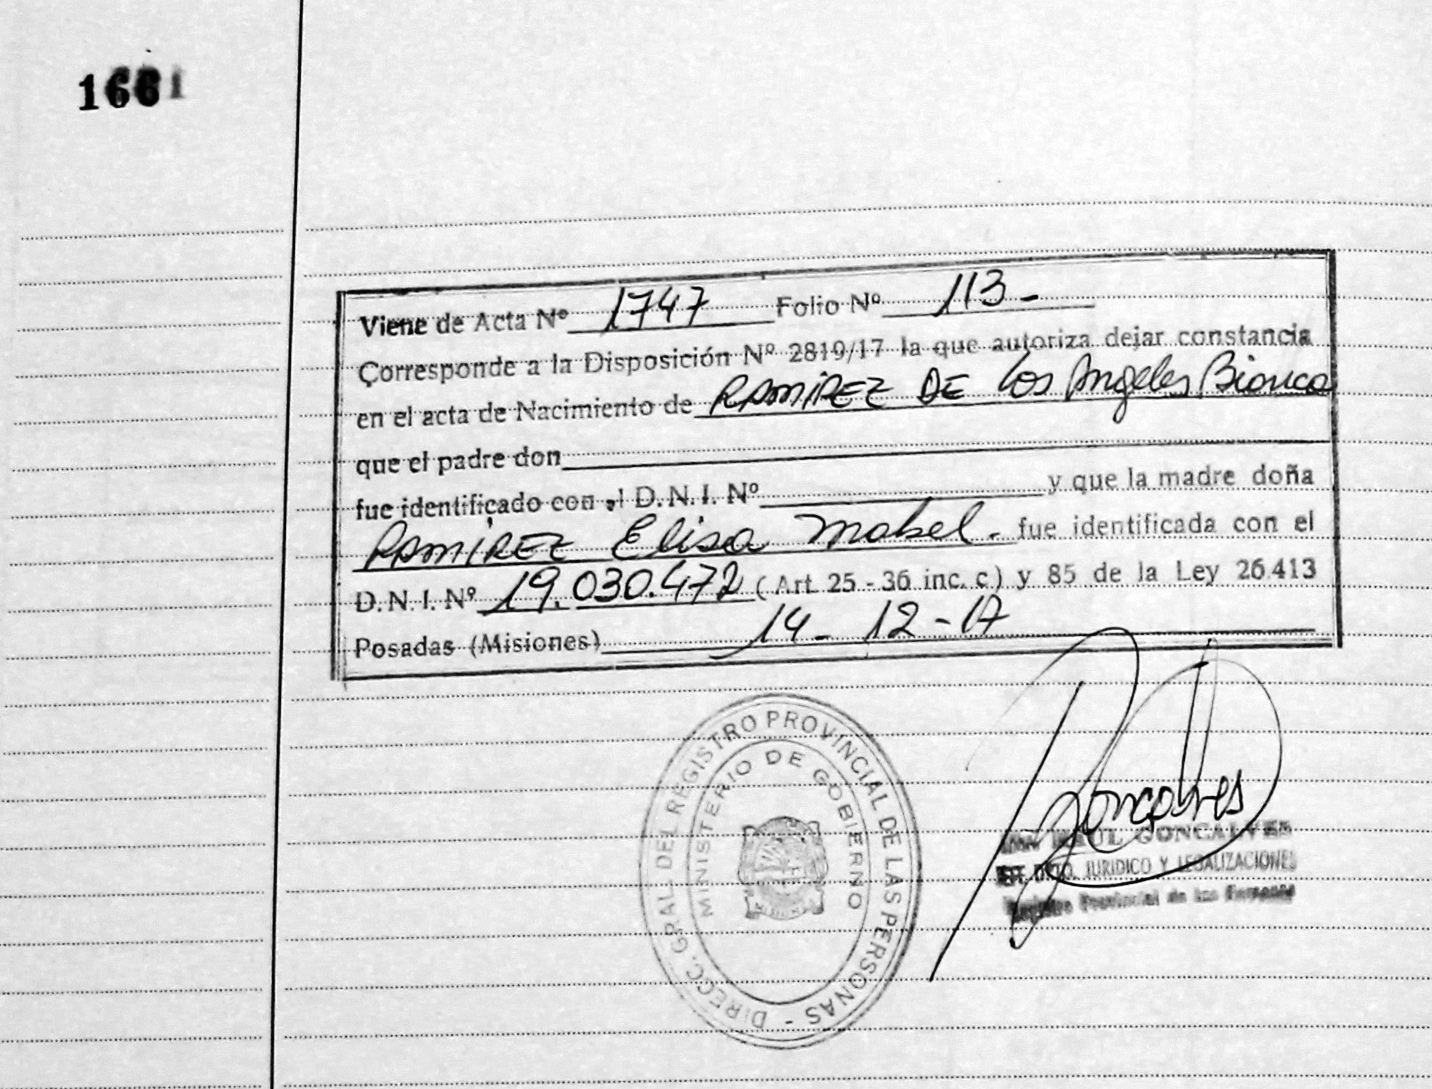 166
Viene de Acta Nº 1747 Folio Nº 113-
Corresponde a la Disposición Nº 2819/17 la que autoriza dejar constancia
en el acta de Nacimiento de RAMÍREZ DE Los Angeles Bianca
que el padre don
fue identificado con el D.N.I. Nº y que la madre doña
RAMÍREZ Elisa Mabel. fue identificada con el
D.N.I. Nº 19.030.472 (Art. 25-36 inc. c) y 85 de la Ley 26.413
Posadas (Misiones) 14-12-17
DIRECC. GRAL DEL REGISTRO PROVINCIAL DE LAS PERSONAS -
MINISTERIO DE GOBIERNO
Goncalves
RAUL GONCALVES
DPTO. JURIDICO Y LEGALIZACIONES
Registro Provincial de las Personas